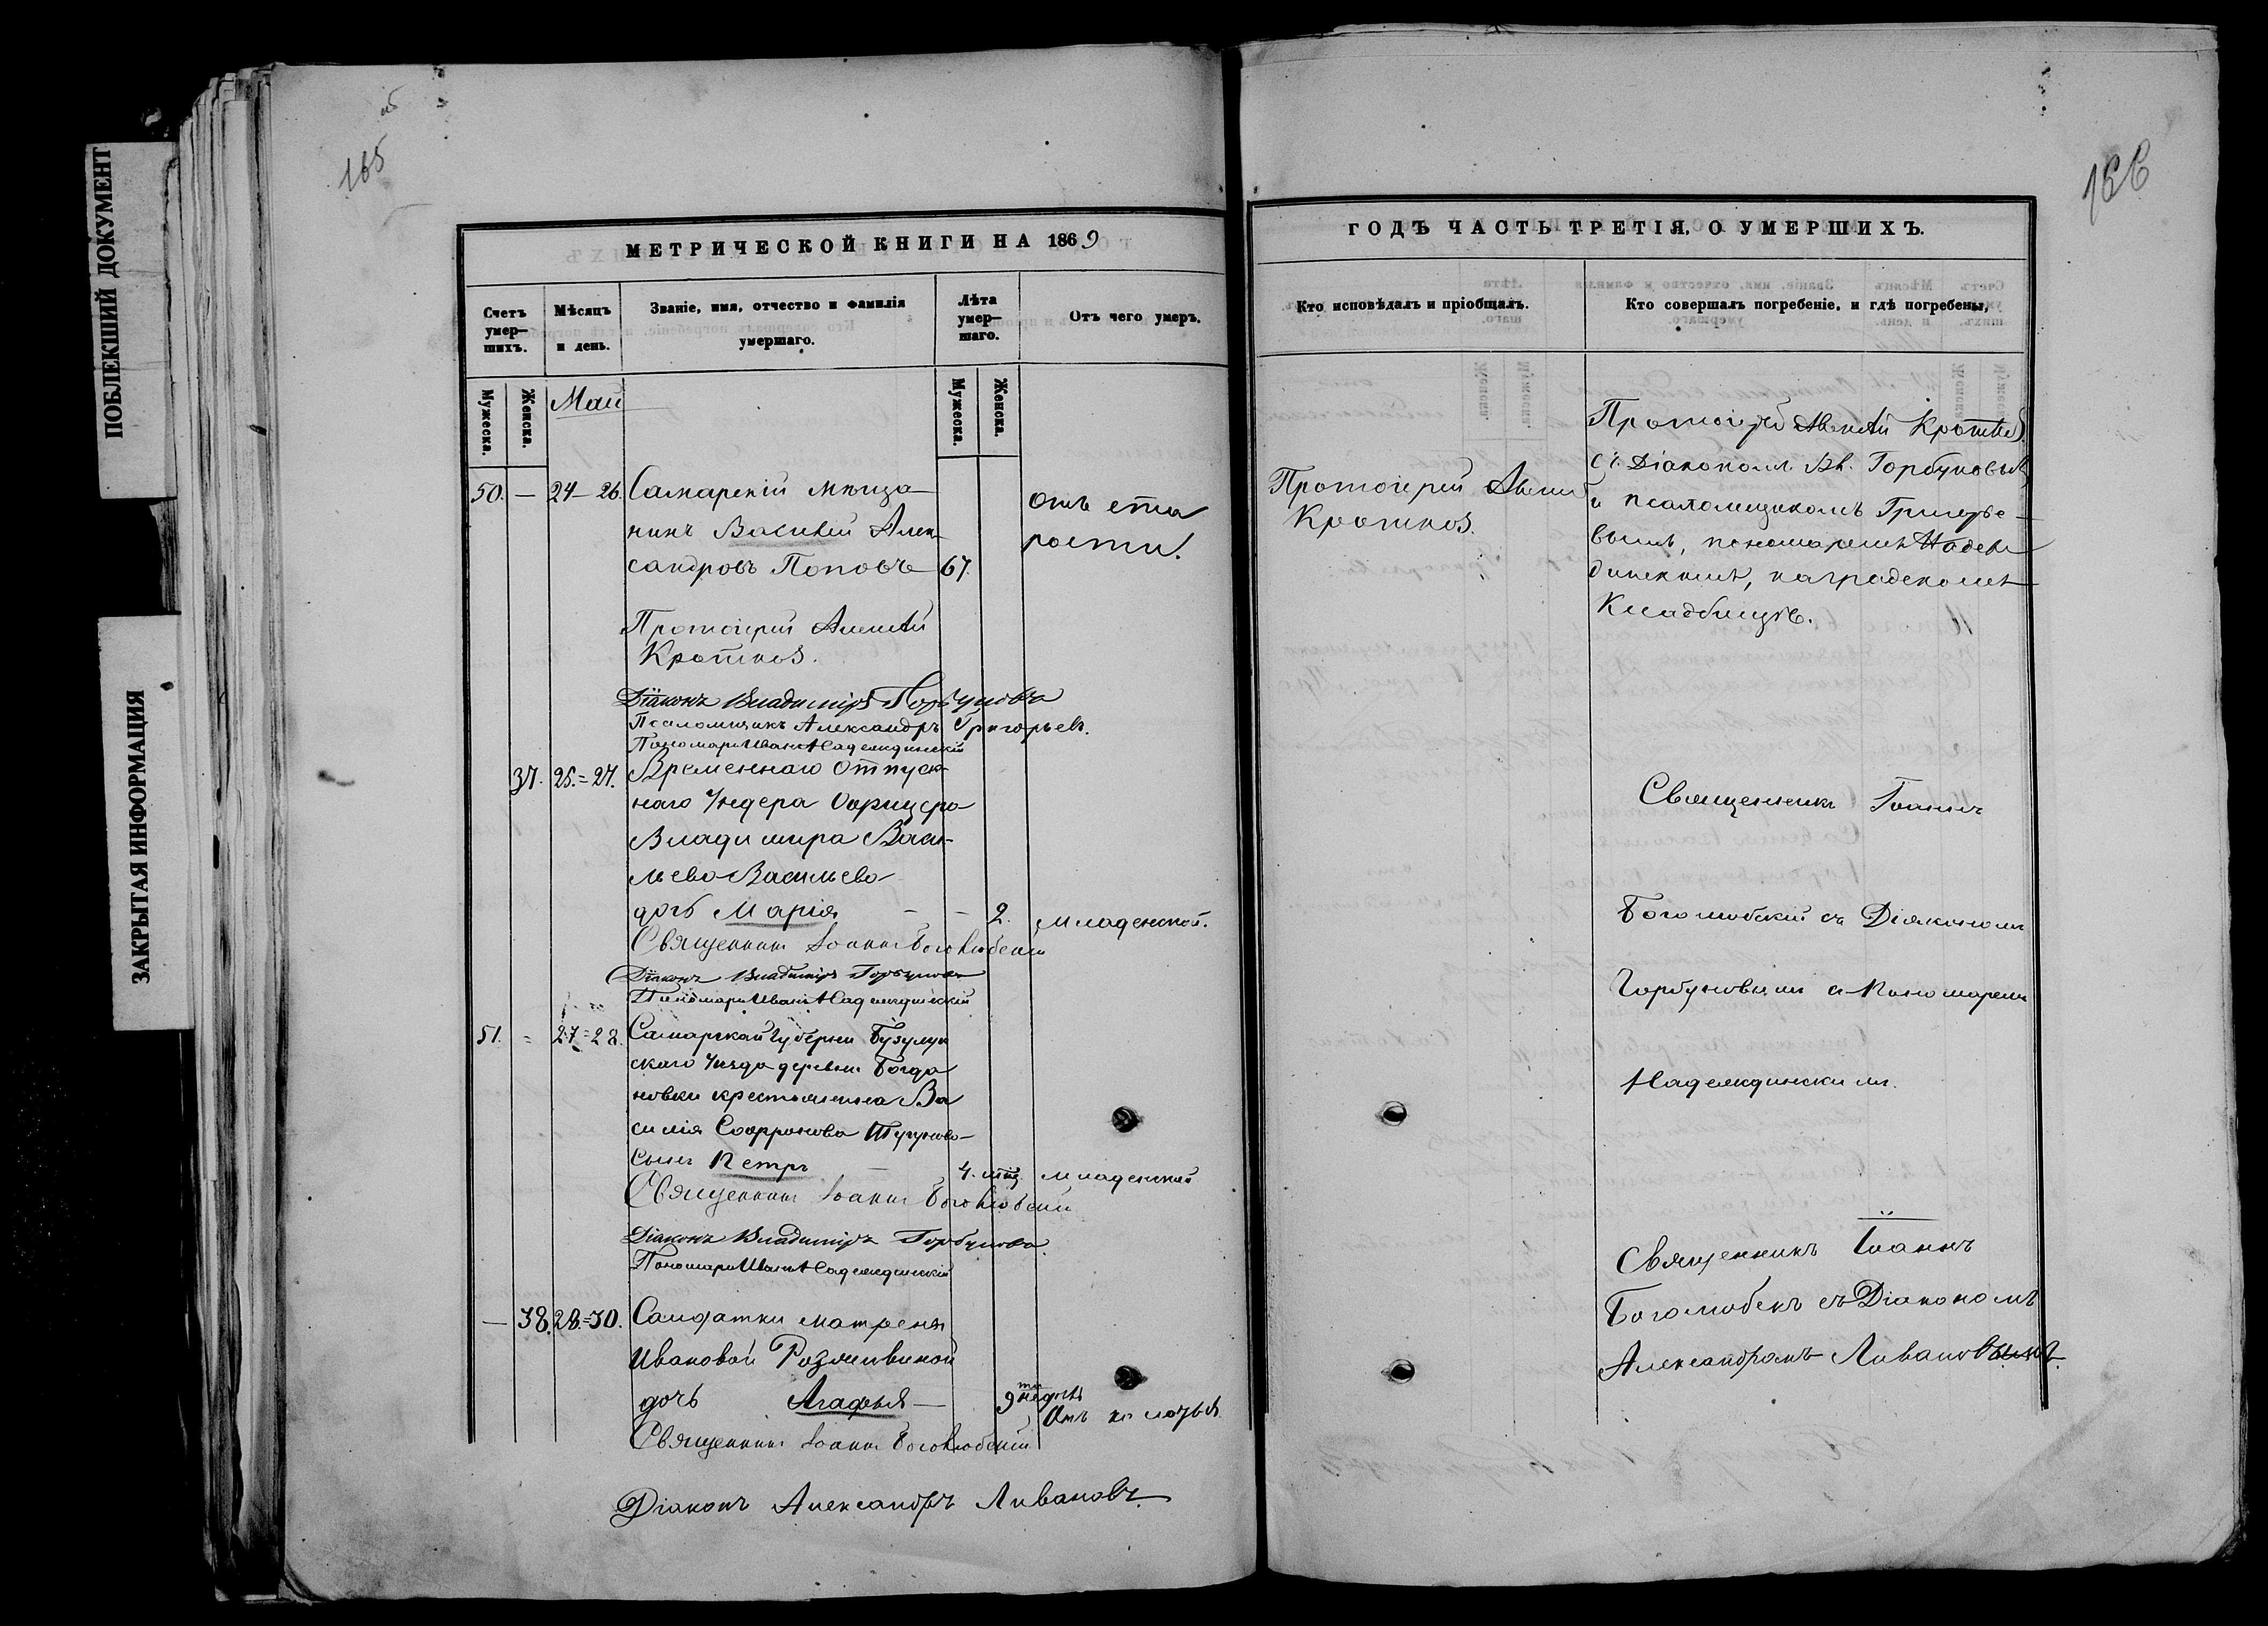 ПОБЛЕКШИЙ ДОКУМЕНТ
ЗАКРЫТАЯ ИНФОРМАЦИЯ
165
МЕТРИЧЕСКОЙ КНИГИ НА 1869
Счетъ умер-шихъ.
Мѣсяцъ и день.
Званіе, имя, отчество и фамилія умершаго.
Лѣта умер-шаго.
Отъ чего умеръ.
Мужеска.
Женска.
Май
Мужеска.
Женска.
50. — 24-26. Самарскій мѣща-
нинъ Василій Алек-
сандровъ Поповъ 67.
отъ ста
рости.
Протоіерей Алексѣй
Кротковъ.
Діаконъ Владиміръ Горбуновъ
Псаломщикъ Александръ Григорьевъ.
Пономарь Иванъ Надеждинскій
37. 25.=27. Временнаго отпуск-
наго Ундера Офицера
Владимира Васи-
льева Васильева
дочь Марія — — 2. младенской.
Священникъ Іоаннъ Боголюбскій
Діаконъ Владиміръ Горбуновъ
Пономарь Иванъ Надеждинскій
51. = 27=28. Самарской Губерніи Бузулук
скаго Уѣзда деревни Богда
новки крестьянина Ва
силія Софронова
сынъ Петръ — 4. мѣц. младенской
Священникъ Іоаннъ Боголюбскій
Діаконъ Владиміръ Горбуновъ.
Пономарь Иванъ Надеждинскій
— 38. 28.=30. Солдатки Матрены
Ивановой
дочь Агафья — 9 недѣль
Отъ
Священникъ Іоаннъ Боголюбскій
Діаконъ Александръ Ливановъ.
166
ГОДЪ ЧАСТЬ ТРЕТІЯ, О УМЕРШИХЪ.
Кто исповѣдалъ и пріобщалъ.
Кто совершалъ погребеніе, и гдѣ погребены,
Протоіерей Алексѣй
Кротковъ.
Протоіерей Алексѣй Кротковъ
съ Діакономъ Вл. Горбуновымъ
и псаломщикомъ Григорье-
вымъ, пономаремъ Надеж
динскимъ, на градскомъ
Кладбищѣ.
Священникъ Іоаннъ
Боголюбскій съ Діакономъ
Горбуновымъ и Пономаремъ
Надеждинскимъ.
Священникъ Іоаннъ
Боголюбскъ съ Діакономъ
Александромъ Ливановымъ.